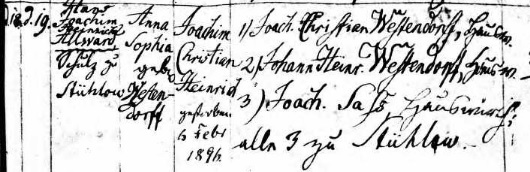 18. 19.
Hans
Joachim
Heinrich
Allward
Schulz zu
Stühlow
Anna
Sophia
geb.
Westen-
dorff
Joachim
Christian
Heinrich
gestorben
6 Febr
1896
1) Joach. Christian Westendorf, Hausw.
2) Johann Heinr. Westendorf, Hausw.
3) Joach. Saß, Hauswirth;
alle 3 zu Stühlow.